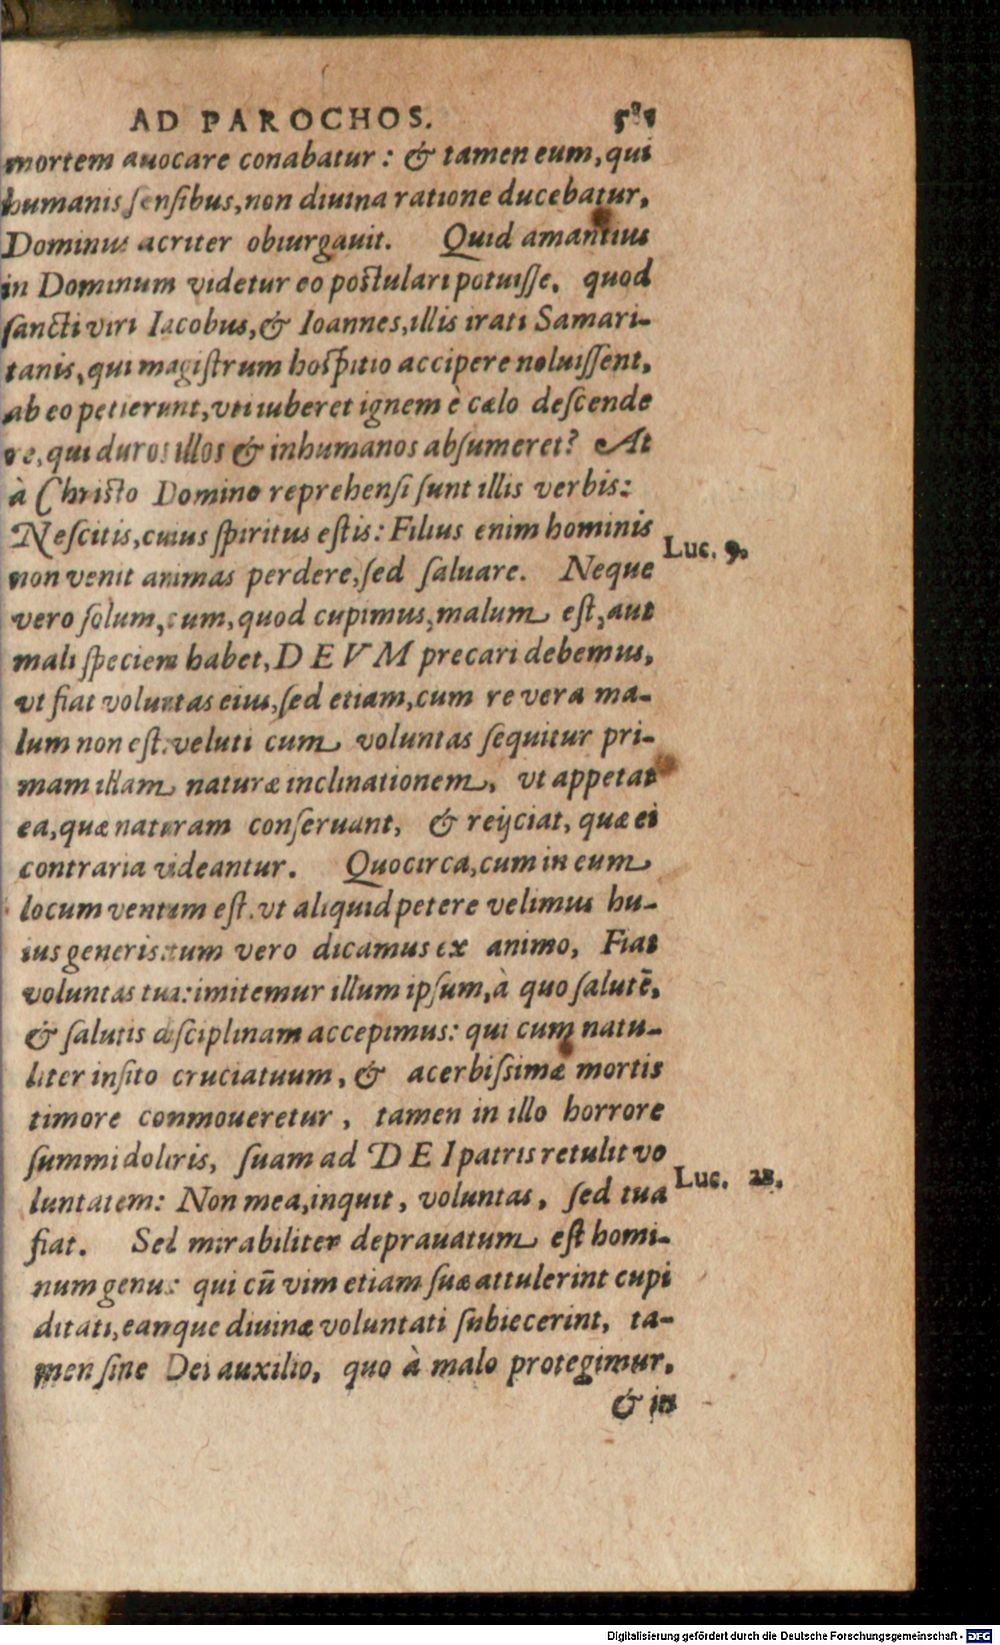 AD PAROCHOS. 581
mortem auocare conabatur: & tamen eum, qui
humanis sensibus, non diuina ratione ducebatur,
Dominus acriter obiurgauit. Quid amantius
in Dominum videtur eo postulari potuisse, quod
sancti viri Iacobus, & Ioannes, illis irati Samari-
tanis, qui magistrum hospitio accipere noluissent,
ab eo petierunt, vti iuberet ignem è cælo descende
re, qui duros illos & inhumanos absumeret? At
à Christo Domino reprehensi sunt illis verbis:
Nescitis, cuius spiritus estis: Filius enim hominis
Luc. 9.
non venit animas perdere, sed saluare. Neque
vero solum, cum, quod cupimus, malum est, aut
mali speciem habet, DEVM precari debemus,
vt fiat voluntas eius, sed etiam, cum re vera ma-
lum non est: veluti cum voluntas sequitur pri-
mam illam naturæ inclinationem, vt appetat
ea, quæ naturam conseruant, & reijciat, quæ ei
contraria videantur. Quocirca, cum in eum
locum ventum est, vt aliquid petere velimus hu-
ius generis: tum vero dicamus ex animo, Fiat
voluntas tua: imitemur illum ipsum, à quo salutē,
& salutis disciplinam accepimus: qui cum natu-
liter insito cruciatuum, & acerbissimæ mortis
timore conmoueretur, tamen in illo horrore
summi doloris, suam ad DEI patris retulit vo
Luc. 22.
luntatem: Non mea, inquit, voluntas, sed tua
fiat. Sed mirabiliter deprauatum est homi-
num genus: qui cū vim etiam suæ attulerint cupi
ditati, eamque diuinæ voluntati subiecerint, ta-
men sine Dei auxilio, quo à malo protegimur,
& in
Digitalisierung gefördert durch die Deutsche Forschungsgemeinschaft - DFG